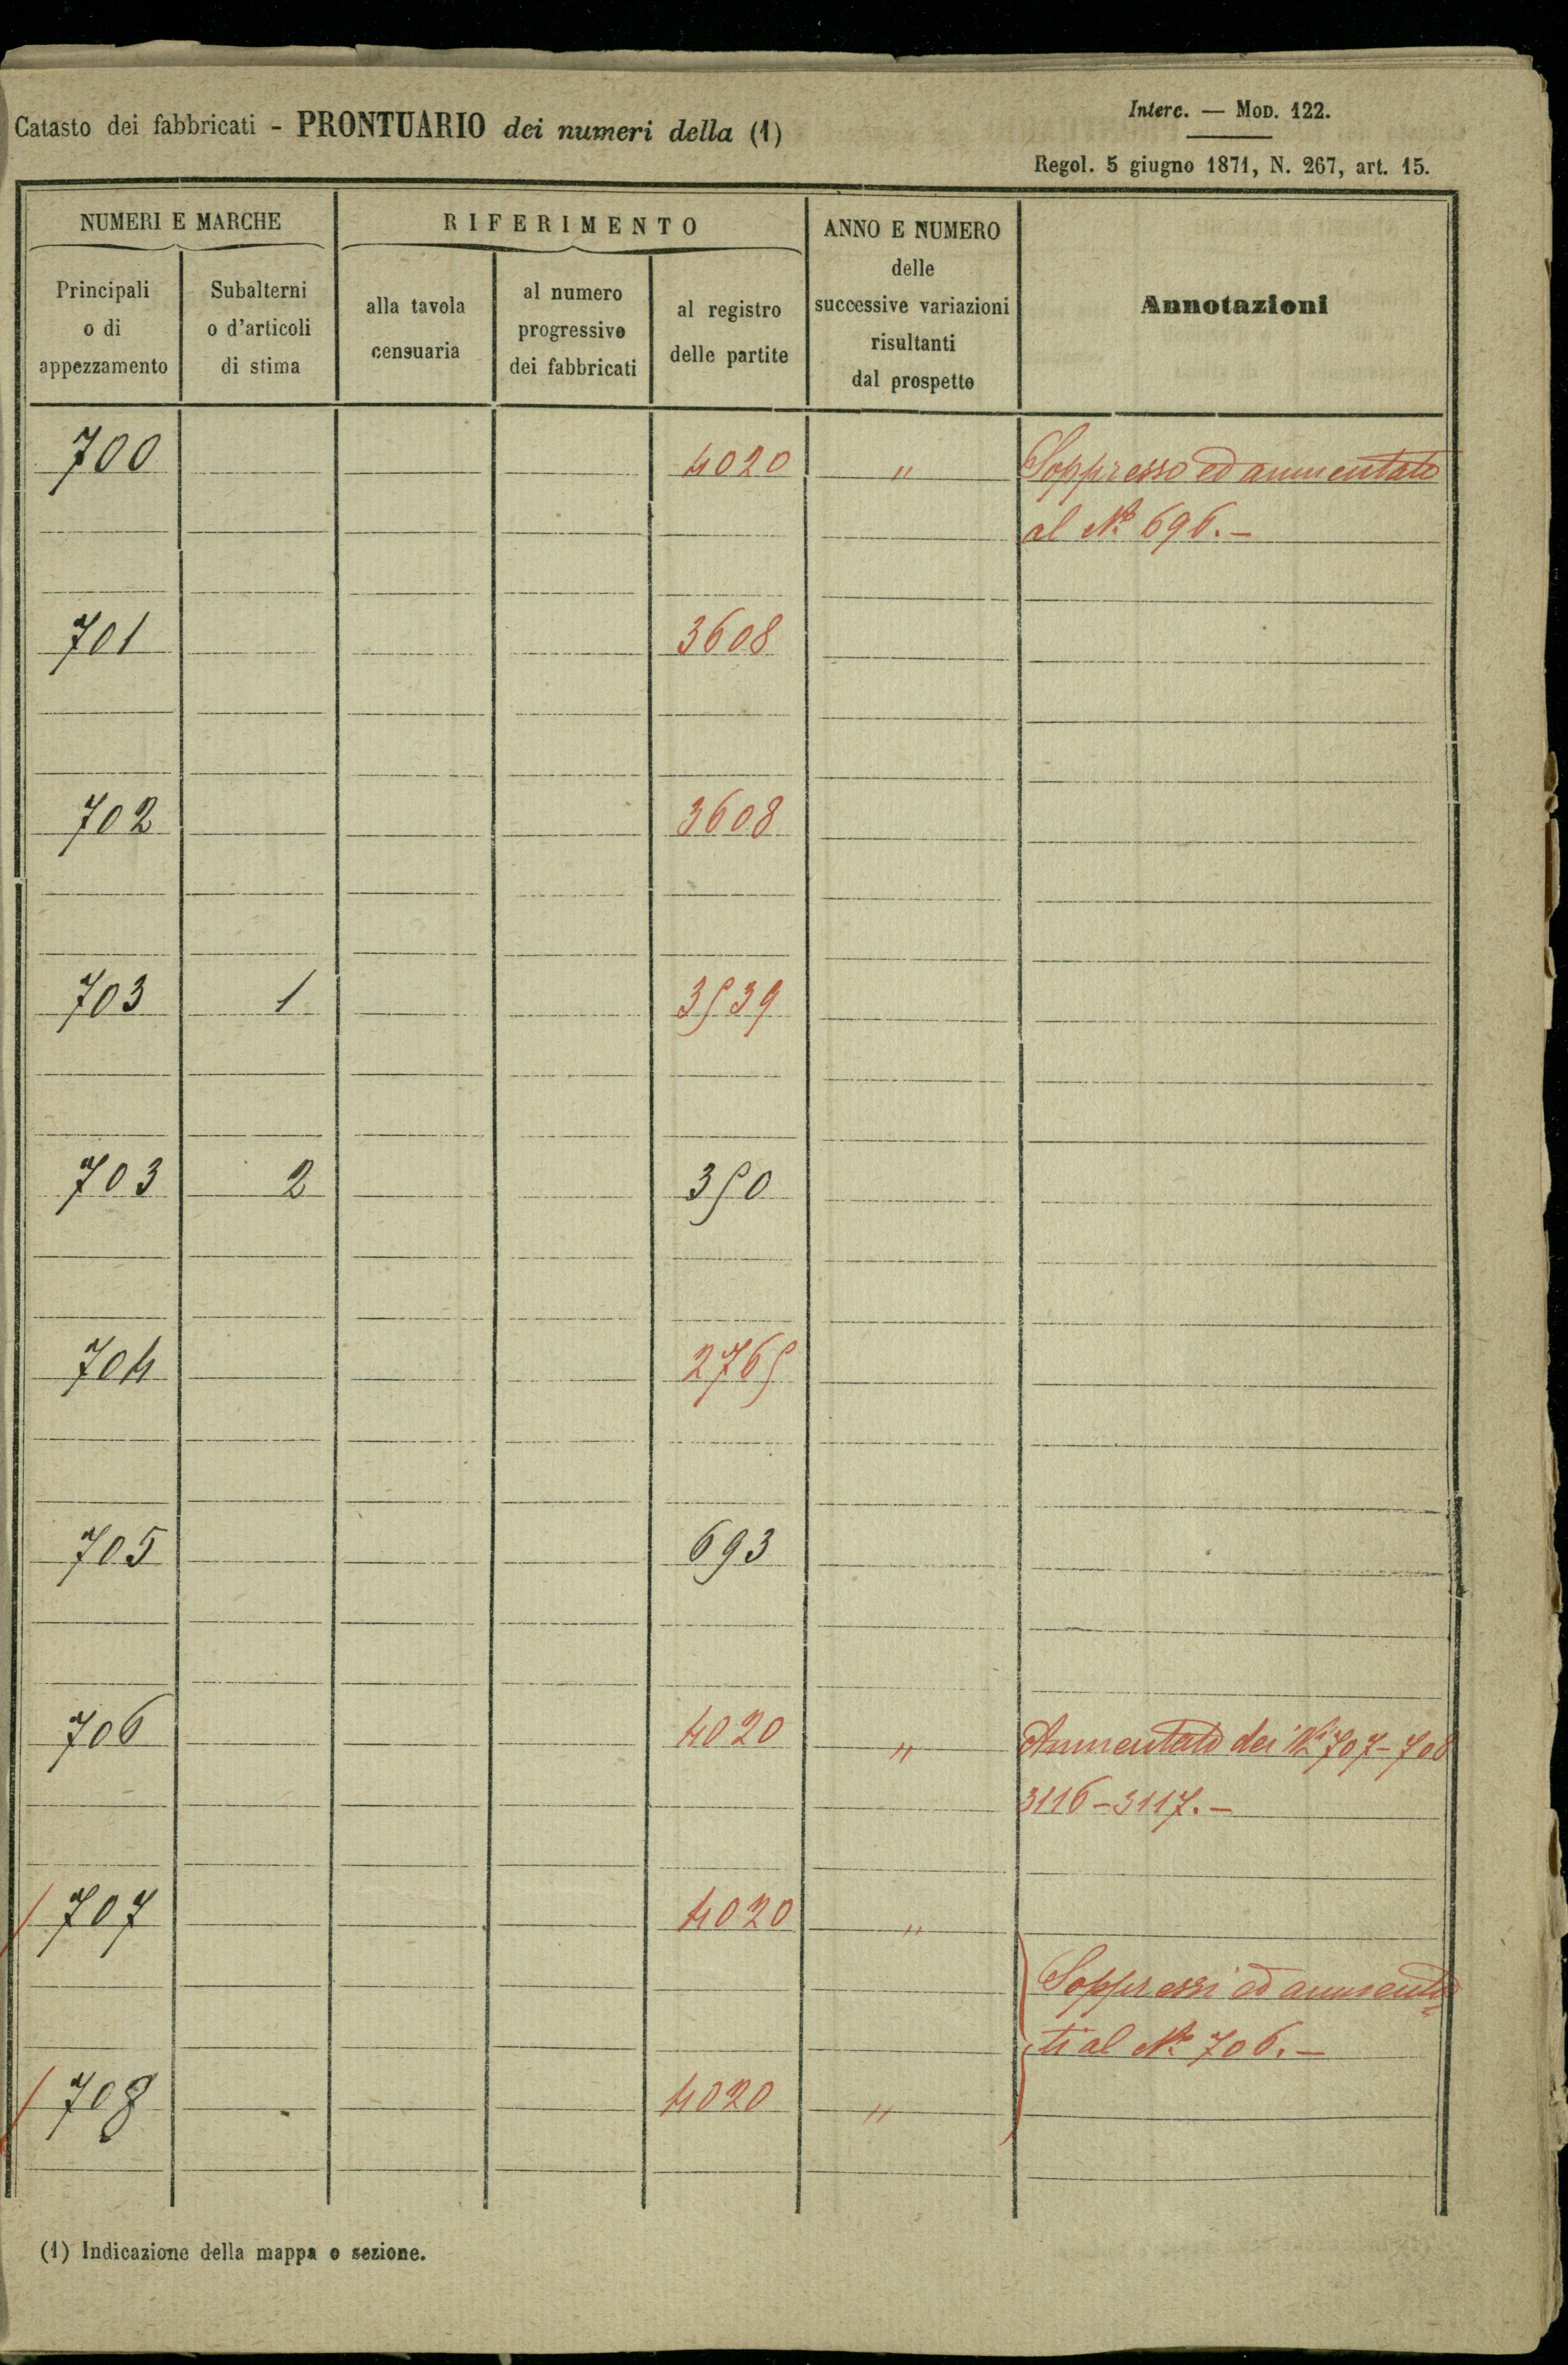 Catasto dei fabbricati - PRONTUARIO dei numeri della (1)
Interc. — Mod. 122.
Regol. 5 giugno 1871, N. 267, art. 15.
NUMERI E MARCHE
RIFERIMENTO
ANNO E NUMERO
delle
successive variazioni
risultanti
dal prospetto
Annotazioni
Principali
o di
appezzamento
Subalterni
o d'articoli
di stima
alla tavola
censuaria
al numero
progressivo
dei fabbricati
al registro
delle partite
700 4020 " Soppresso ed aumentato
al N.° 696.-
701 3608
702 3608
703 1 3539
703 2 350
704 2765
705 693
706 4020 " Aumentato dei Ni 707-708
3116-3117.-
707 4020 "
Soppressi ed aumenta=
ti al N.° 706.-
708 4020 "
(1) Indicazione della mappa o sezione.